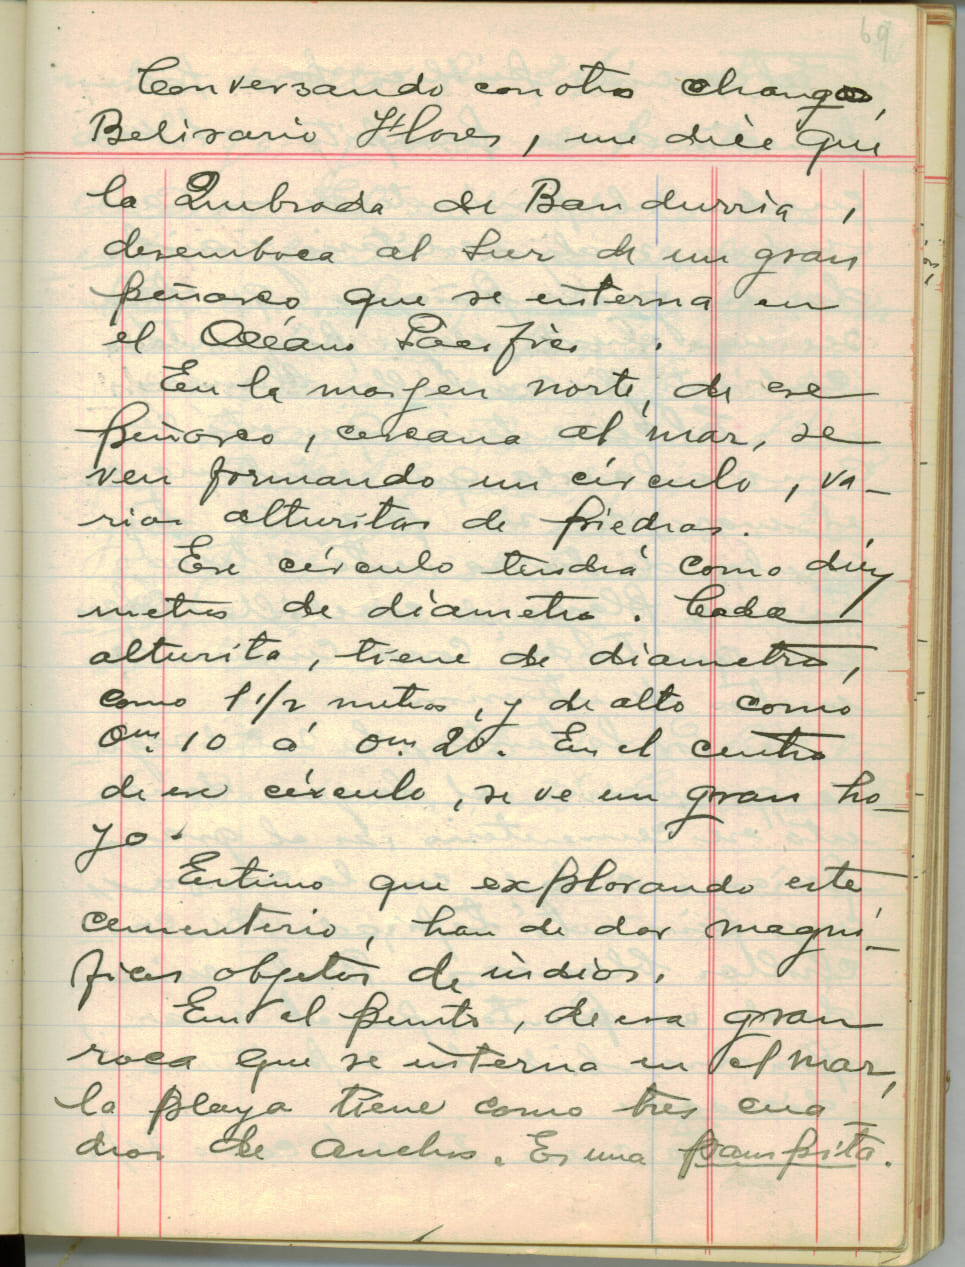 69
Conversando con otro chango,
Belisario Flores, me dice que
la Quebrada de Bandurria,
desemboca al Sur de un gran
peñasco que se interna en
el Océano Pacífico.
En la margen norte, de ese
peñasco, cercana al mar, se
ven formando un círculo, va-
rias alturitas de piedras.
Ese círculo tendrá como diez
metros de diámetro. Cada
alturita, tiene de diametro,
como 1 1/2 metros, y de alto como
0m. 10 á 0m. 20. En el centro
de ese círculo, se ve un gran ho-
yo.
Estimo que explorando este
cementerio, han de dar magní-
ficos objetos de indios.
En el punto, de esa gran
roca que se interna en el mar,
la playa tiene como tres cua
dras de ancho. Es una pampita.